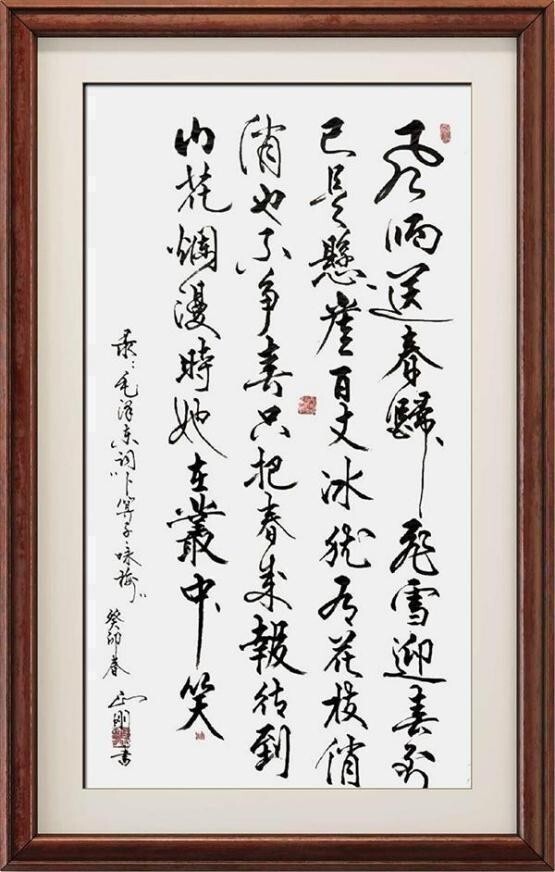 风雨送春歸飛雪迎春到
已是懸崖百丈冰犹有花枝俏
俏也不争春只把春来報待到
山花爛漫時她在叢中笑
录：毛泽东词"卜算子·咏梅"癸卯春 刚书